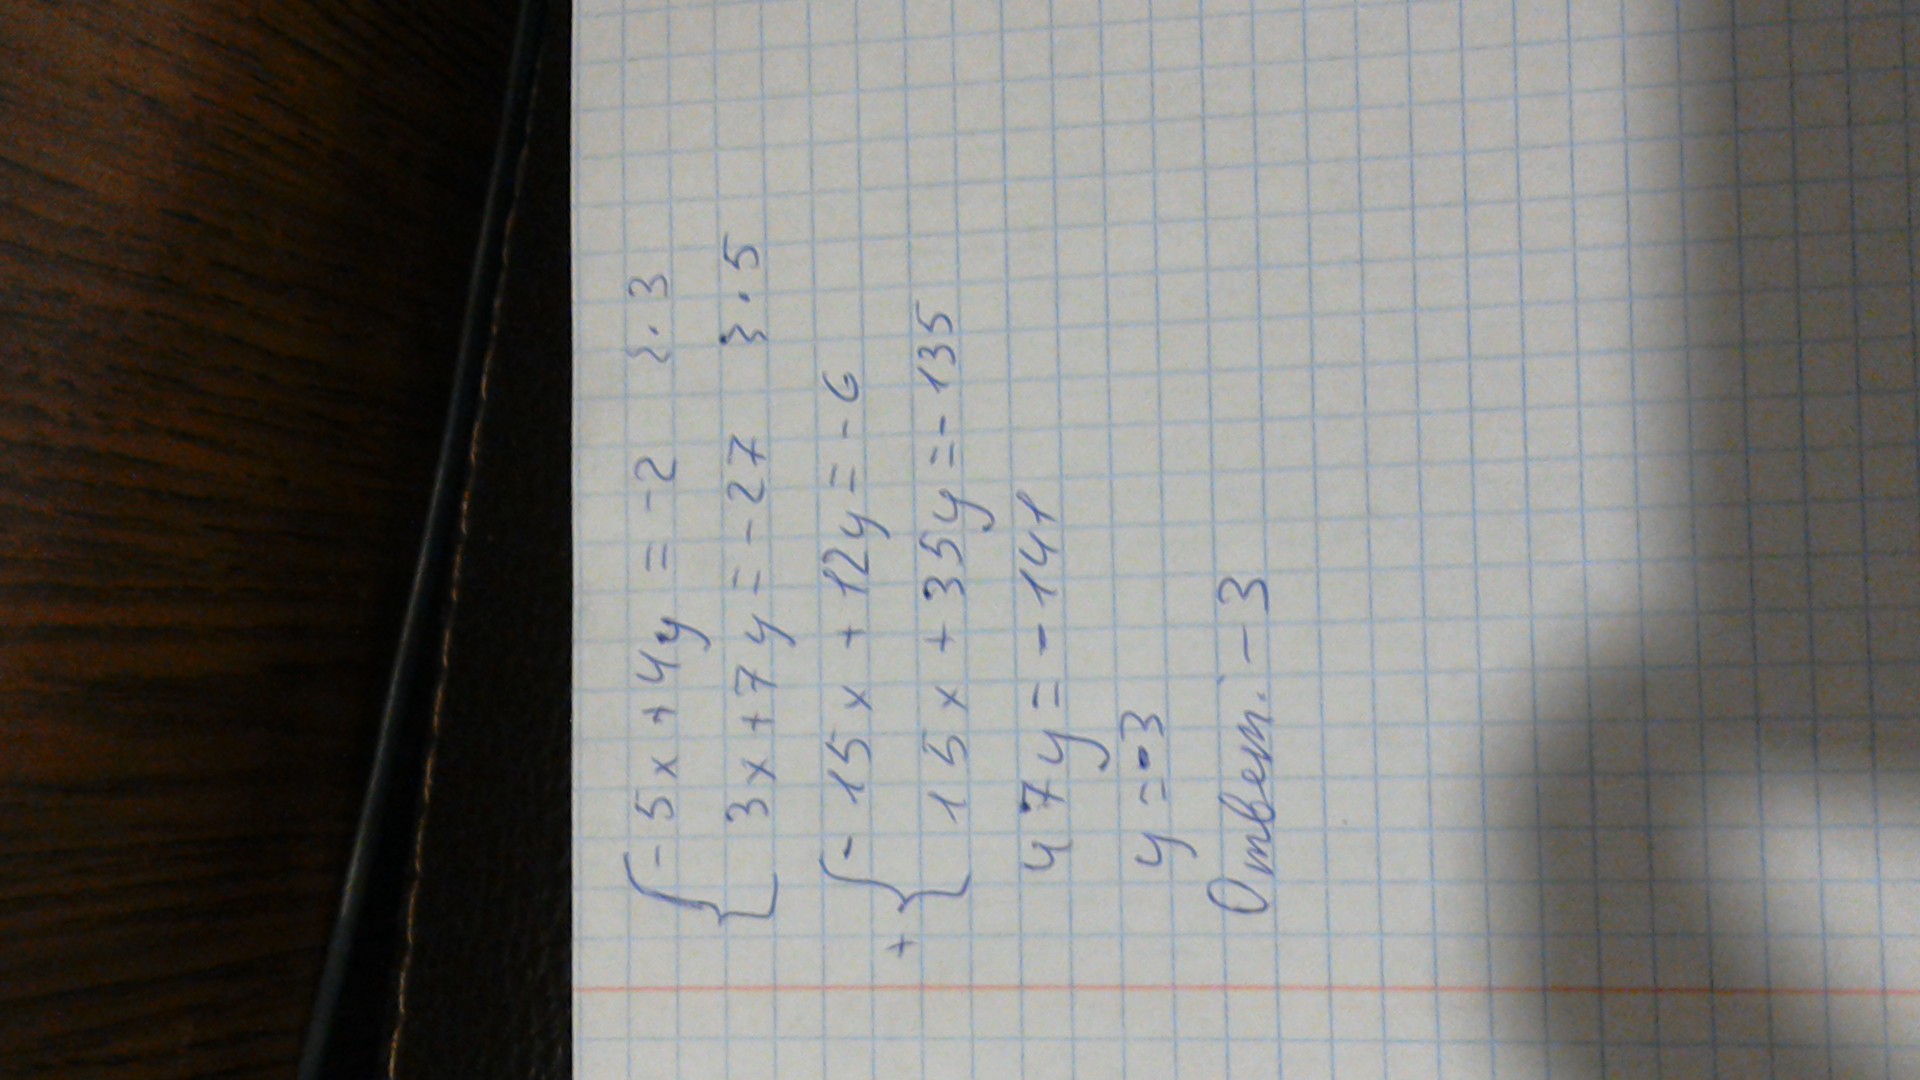 { -5x+4y = -2 } · 3
3x+7y = -27 } · 5
+ { -15x + 12y = -6
15x + 35y = -135
47y = -141
y = -3
Ответ: -3